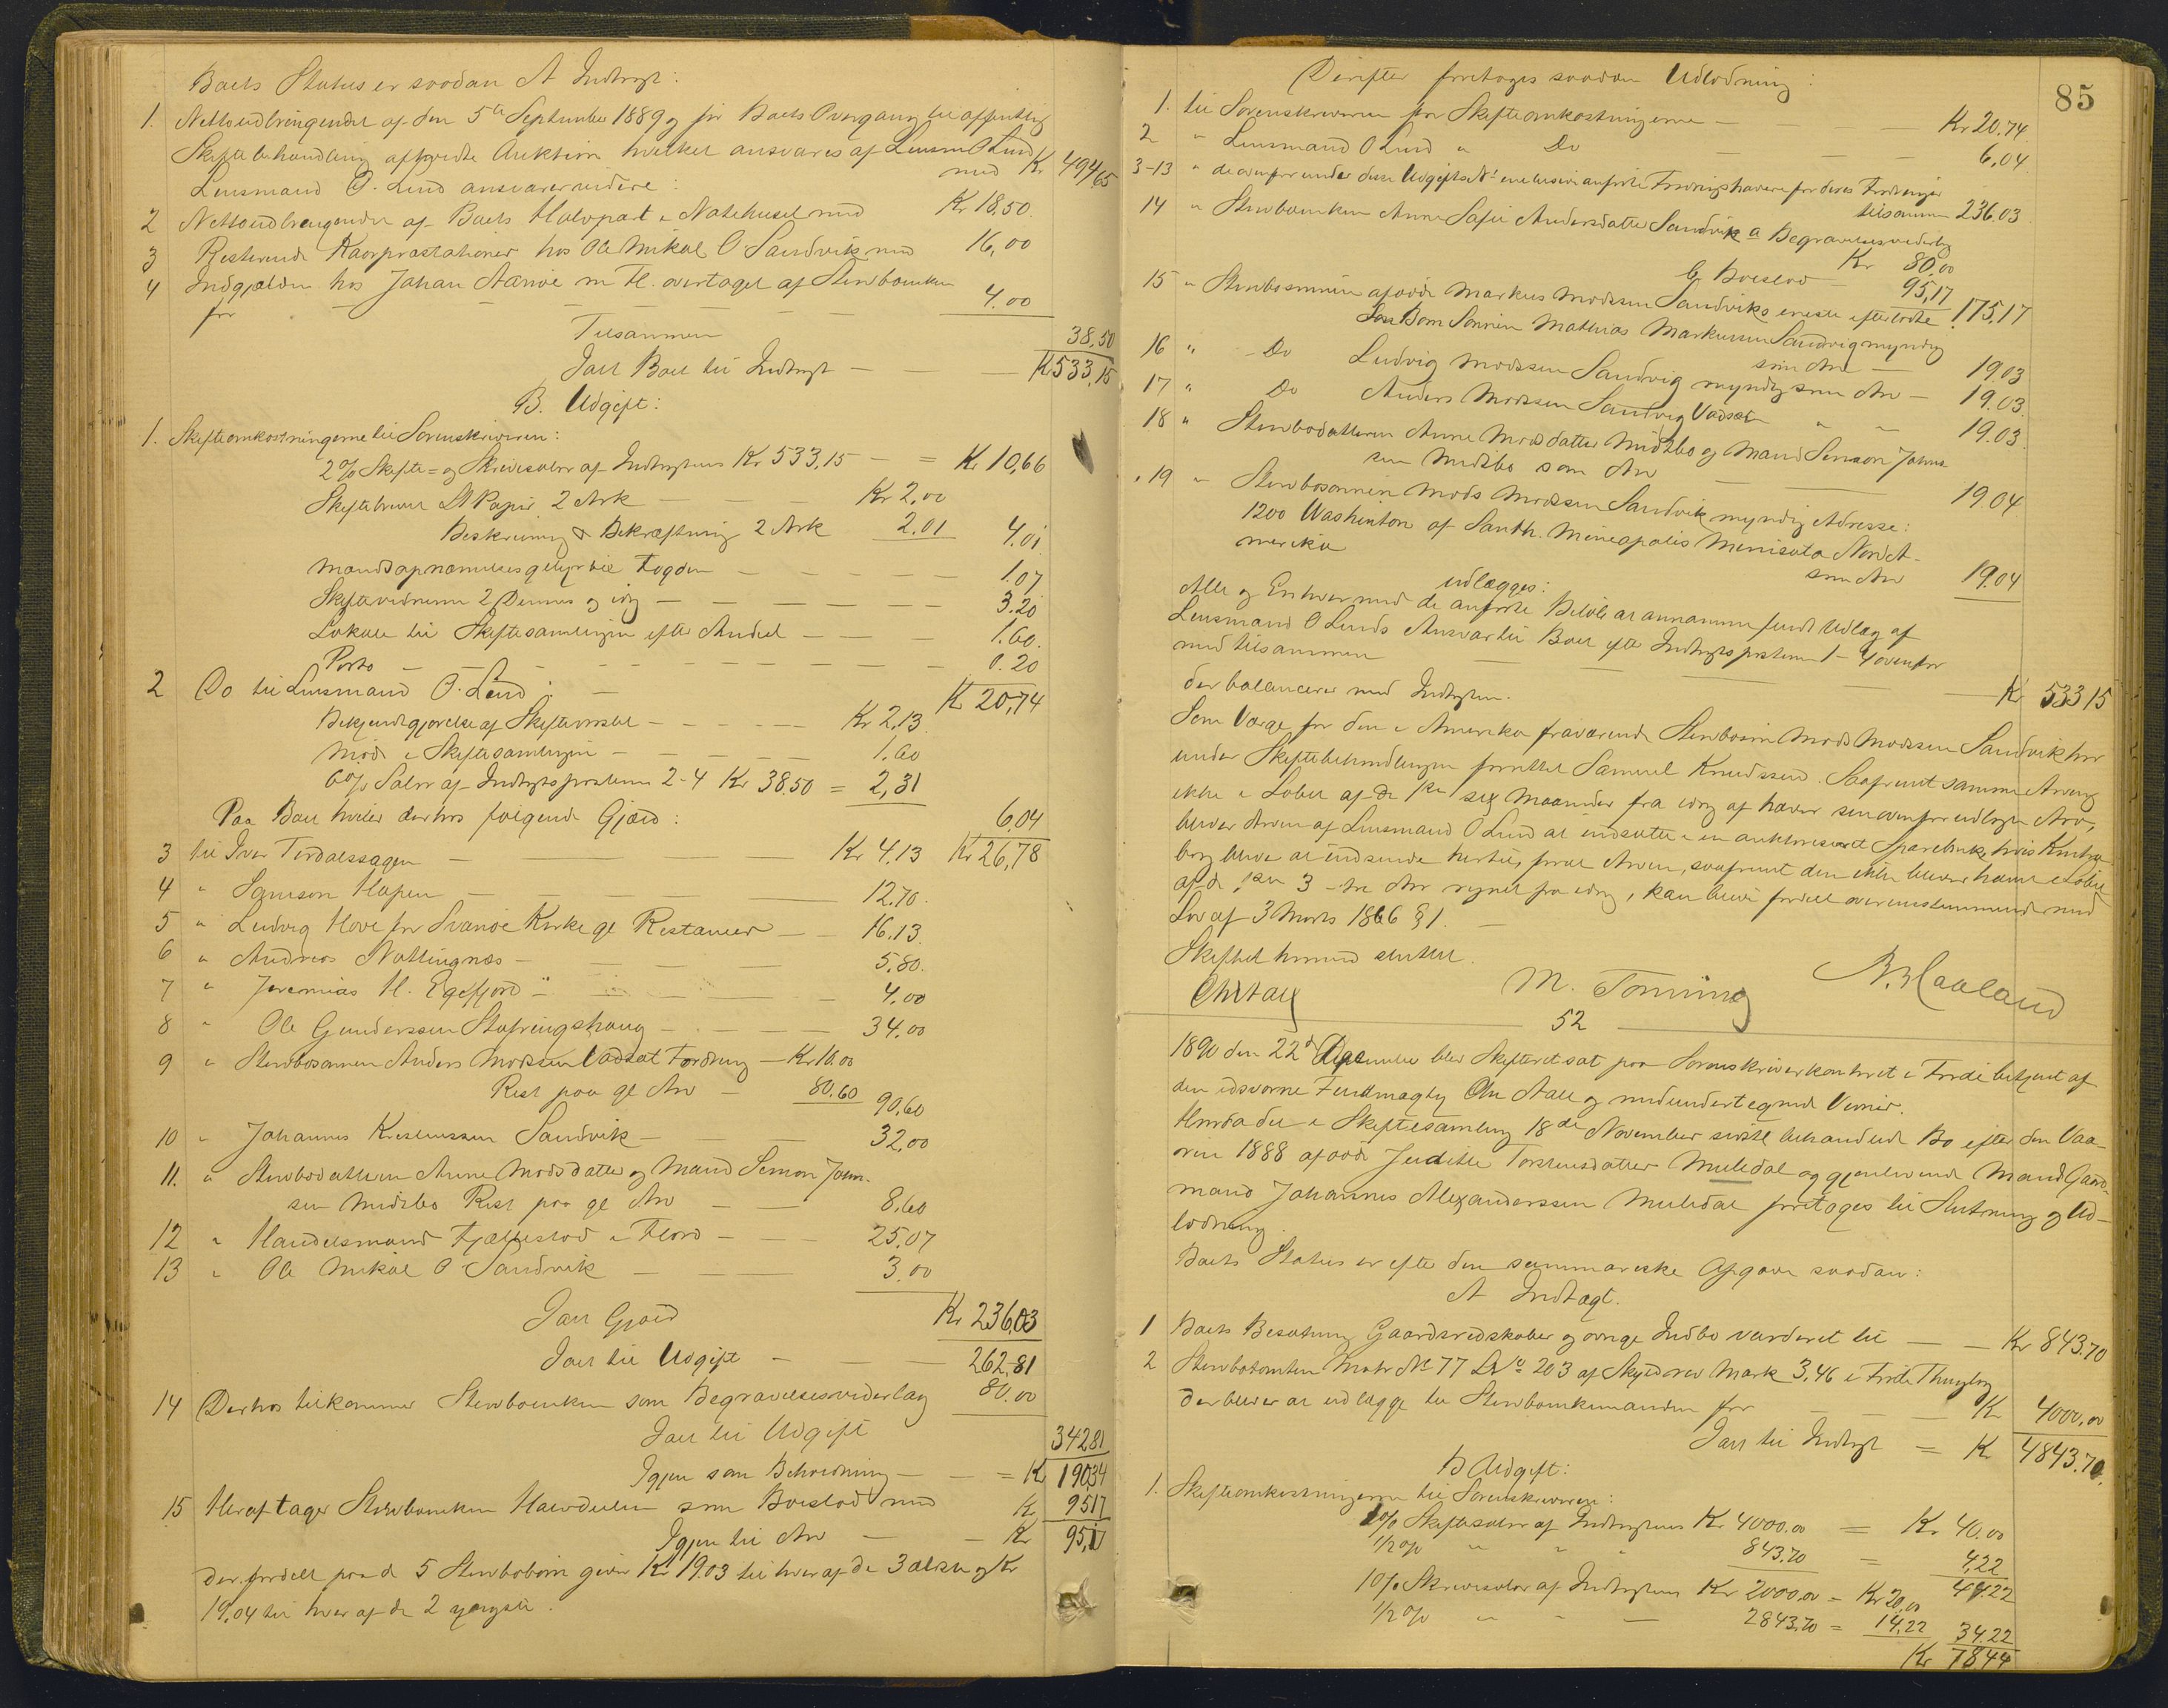 Boets Status er saadan A Indtægt:
1. Nettoudbringendet af den 5te September 1889 og før Boets Overgang til offentlig
Skiftebehandling afholdte Auktion hvilket ansvares af Lensm O Lund
med Kr 494,65
Lensmand O. Lund ansvarer videre:
2 Nettoudbringendet af Boets Halvpart i Nøstehuset med Kr 18,50.
3 Resterende Kaarpræstationer hos Ole Mikal O Sandvik med 16,00
4 Indgjælden hos Johan Aarøe m Fl. overtaget af Stervboenken
for — — — — 4.00
Tilsammen 38,50
Iall Boet til Indtægt — — — Kr 533,15
B. Udgift:
1. Skifteomkostningerne til Sorenskriveren:
2% Skifte= og Skriversalær af Indtægtens Kr 533,15 — = Kr 10,66
Skiftebrevet St Papir 2 Ark — — — Kr 2,00
Beskrivning & Bekræftning 2 Ark 2.01 4.01
Mandsopnævnelsesgebyr til Fogden — — — — — 1.07
Skiftevidnerne 2 Dennes og idag — — — — — — 3.20
Lokale til Skiftesamlingen efter Andel — — 1.60.
Porto — — — — — — — — — 0.20
Kr 20,74
2 Do til Lensmand O. Lund: —
Bekjendtgjørelse af Skifteavertsel — — — — — Kr 2,13.
Møde i Skiftesamlingen — — — — 1.60
6% Salær af Indtægtsposterne 2-4 Kr 38.50 = 2,31
6,04
Kr 26,78
Paa Boet hviler derhos følgende Gjæld:
3 til Iver Tordalssagen — — — Kr 4.13
4 " Samson Hopen — — — 12.70.
5 " Ludvig Hove for Svanøe Kirke gl Restancer — — 16.13.
6 " Andreas Nøttingnæs — — — — 5,80.
7 " Jeremias H. Egefjord — — — — 4.00
8 " Ole Gunderssen Stafringshaug — — — — 34.00
9 " Stervbosønnen Anders Madssen Vadset Fordring — Kr 10.00
Rest paa gl Arv — 80,60 90,60
10 " Johannes Kristenssen Sandvik — — 32,00
11. " Stervbodatteren Anne Madsdatter og Mand Simon Johns-
sen Midtbø Rest paa gl Arv — — 8,60
12 " Handelsmand Fjællestad i Florø — — — 25.07
13 " Ole Mikal O Sandvik — — — 3.00
Iall Gjæld Kr 236,03
Iall til Udgift — — — 262,81
14 Derhos tilkommer Stervboenken som Begravelsesvederlag 80.00
Iall til Udgift 342,81
Igjen som Beholdning — — = Kr 190,34
15 Heraf tager Stervboenken Halvdelen som Boeslod med Kr 95,17
Igjen til Arv — — Kr 95,17
der fordelt paa de 5 Stervbobørn giver Kr 19.03 til hver af de 3 ældste og Kr
19,04 til hver af de 2 yngste.
85
Derefter foretoges saadan Udlodning:
1. til Sorenskriveren for Skifteomkostningerne — — — Kr 20.74
2 " Lensmand O Lund " Do — — — 6,04
3-13 " de ovenfor under disse Udgifts No inclusive anførte Fordringshavere for deres Fordringer
tilsammen 236.03
14 " Stervboenken Anne Sofie Andersdatter Sandvik a Begravelsesvederlag
Kr 80,00
b Boeslod — 95,17 175,17
15 " Stervbosønnen afdøde Markus Madssen Sandviks eneste efterladte
Barn Sønnen Mathias Markussen Sandvig myndig
som Arv — 19.03
16 " Do Ludvig Madssen Sandvig myndig som Arv — 19.03.
17 " Do Anders Madssen Sandvig Vadset " " 19.03
18 " Stervbodatteren Anne Madsdatter Midtbø og Mand Simon Johns-
sen Midtbø som Arv — — 19.04
19 " Stervbosønnen Mads Madssen Sandvik myndig Adresse:
1200 Washinton af South. Mineapolis Minisota Nord A-
merika som Arv 19.04
udlægges:
Alle og Enhver med de anførte Beløb at annamme fuldt Udlæg af
Lensmand O Lunds Ansvar til Boet efter Indtægtsposterne 1 - 4 ovenfor
med tilsammen — — — Kr 533 15
der balancerer med Indtægten.
Som Værge for den i Amerika fraværende Stervbosøn Mads Madssen Sandvik har
under Skiftebehandlingen forrettet Samuel Knudssen. Saafremt samme Arving
ikke i Løbet af de første sex Maaneder fra idag af hæver sin ovenfor udlagte Arv,
bliver Arven af Lensmand O Lund at indsætte i en authoriseret Sparebank, hvis Kontra-
bog bliver at indsende hertil, forat Arven, saafremt den ikke bliver hævet i Løbet
af de første 3 - tre Aar regnet fra idag, kan blive fordelt overensstemmende med
Lov af 3 Marts 1866 § 1. —
Skiftet hermed sluttet.
Chr Aall M. Tonning A. Haaland
52
1890 den 22de December blev Skifteret sat paa Sorenskriverkontoret i Førde betjent af
den edsvorne Fuldmægtig Chr Aall og medundertegnede Vidner.
Hvorda det i Skiftesamling 18de November sidste behandlede Bo efter den Vaa-
ren 1888 afdøde Judithe Torstensdatter Muledal og gjenlevende Mand Gaard-
mand Johannes Alexanderssen Muledal foretoges til Slutning og Ud-
lodning.
Boets Status er efter den summariske Opgave saadan:
A Indtægt.
1 Boets Besætning Gaardsredskaber og øvrige Indbo vurderet til — — Kr 843.70
2 Stervbotomten Matr No 77 Lno 203 af Skyld rev Mark 3,46 i Førde Thinglag
der bliver at udlægge til Stervboenkemanden for — — — Kr 4000,00
Iall til Indtægt = Kr 4843.70.
B Udgift:
1. Skifteomkostningerne til Sorenskriveren:
1% Skiftesalær af Indtægtens Kr 4000.00 = Kr 40.00
1/2% " " " 843.70 = 4,22
44.22
1% Skriversalær af Indtægtens Kr 2000.00 = Kr 20,00
1/2% " " — 2843,70 = 14,22 34.22
Kr 78 44